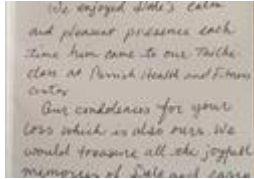 We enjoyed Dale's calm
and pleasant presence each
time him came to our TaiChi
class at Parrish Health and Fitness
center
Our condolences for your
loss which is also ours. We
would treasure all the joyfull
memories of Dale and